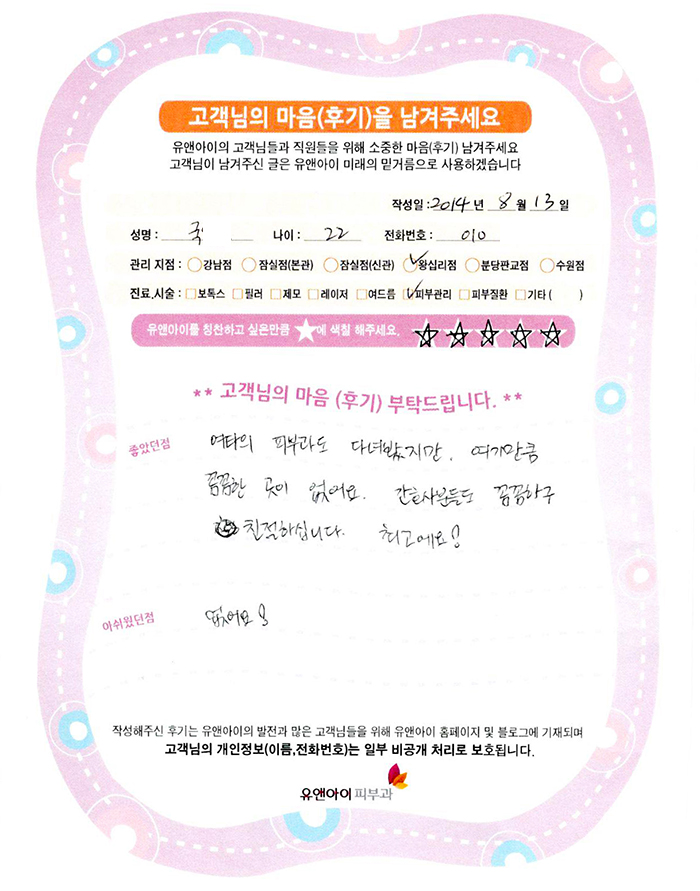 고객님의 마음(후기)을 남겨주세요
유앤아이의 고객님들과 직원들을 위해 소중한 마음(후기) 남겨주세요
고객님이 남겨주신 글은 유앤아이 미래의 밑거름으로 사용하겠습니다
작성일 : 2014 년 8 월 13 일
성명 : 국 나이 : 22 전화번호 : 010
관리 지점 : 강남점 잠실점(본관) 잠실점(신관) 왕십리점 분당판교점 수원점
진료.시술 : 보톡스 필러 제모 레이저 여드름 피부관리 피부질환 기타 ( )
유앤아이를 칭찬하고 싶은만큼 ★에 색칠 해주세요.
** 고객님의 마음 (후기) 부탁드립니다. **
좋았던점
여타의 피부과도 다녀봤지만, 여기만큼
꼼꼼한 곳이 없어요. 간호사분들도 꼼꼼하구
친절하십니다. 최고에요!
아쉬웠던점
없어요!
작성해주신 후기는 유앤아이의 발전과 많은 고객님들을 위해 유앤아이 홈페이지 및 블로그에 기재되며
고객님의 개인정보(이름,전화번호)는 일부 비공개 처리로 보호됩니다.
유앤아이 피부과